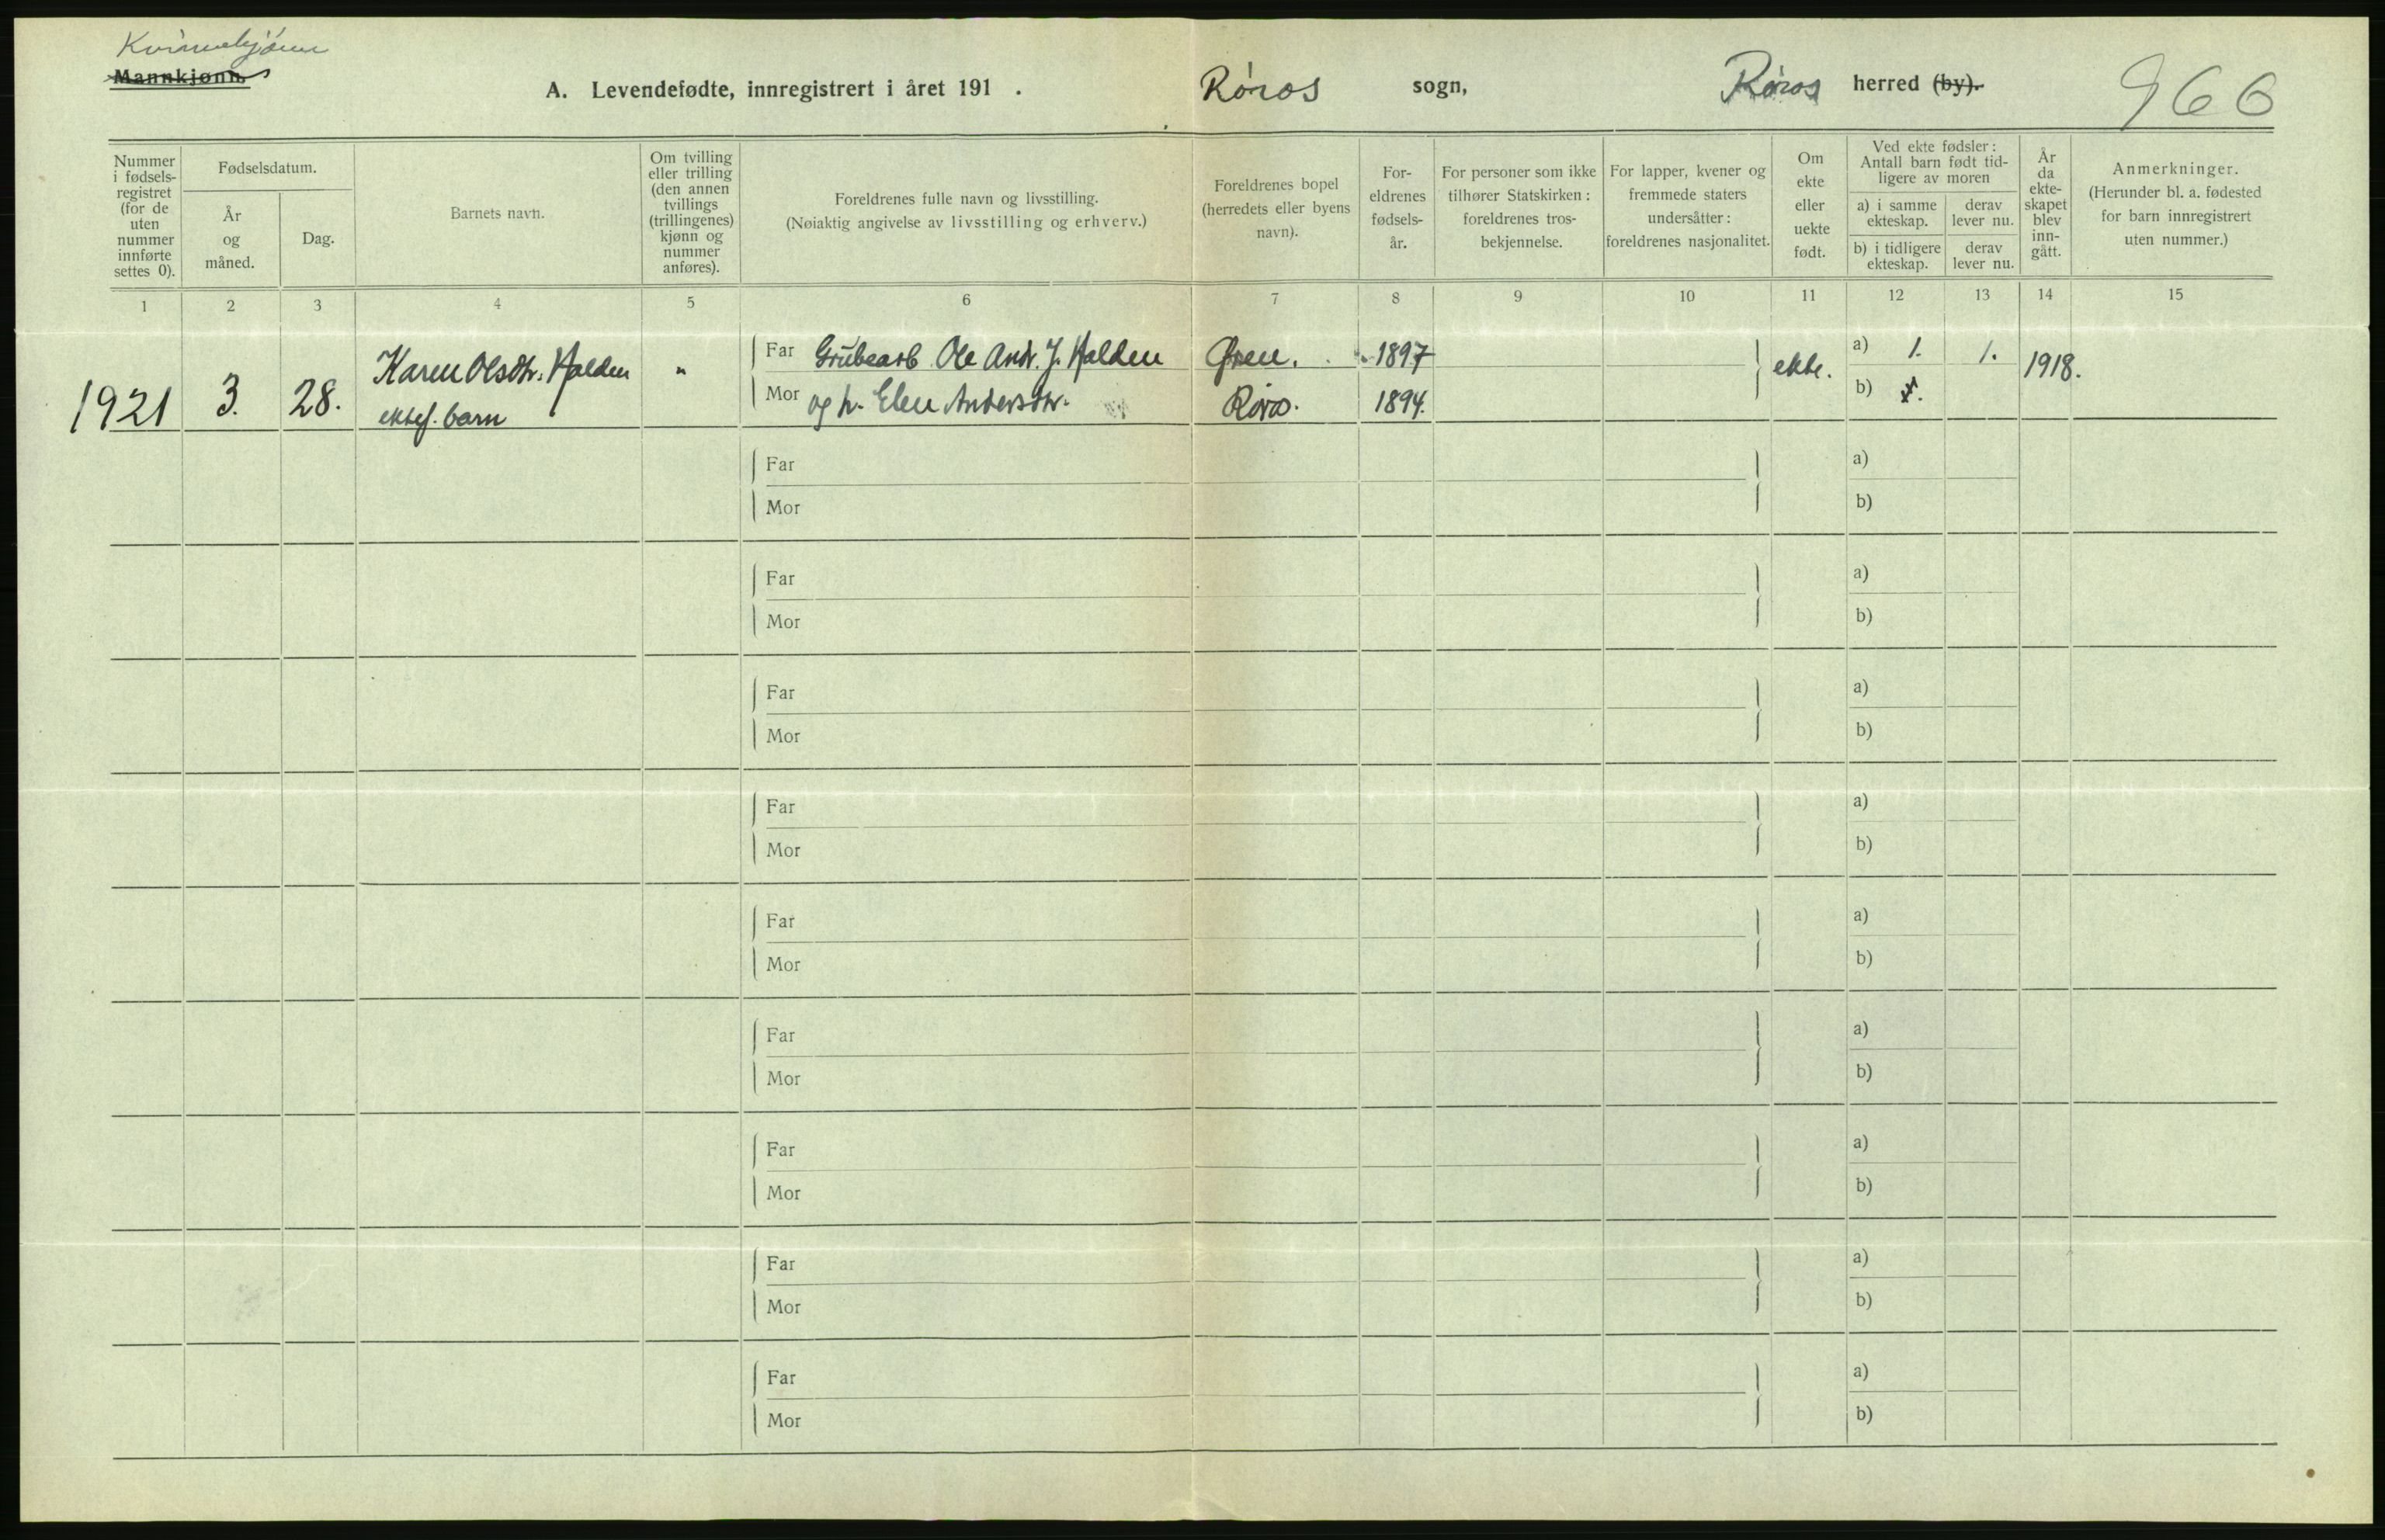 Kvinnekjønn
Mannkjønn.
A. Levendefødte, innregistrert i året 191 .
Røros sogn,
Røros herred (by).
966
Nummer
i fødsels-
registret
(for de
uten
nummer
innførte
settes 0).
Fødselsdatum.
År
og
måned.
Dag.
Barnets navn.
Om tvilling
eller trilling
(den annen
tvillings
(trillingenes)
kjønn og
nummer
anføres).
Foreldrenes fulle navn og livsstilling.
(Nøiaktig angivelse av livsstilling og erhverv.)
Foreldrenes bopel
(herredets eller byens
navn).
For-
eldrenes
fødsels-
år.
For personer som ikke
tilhører Statskirken:
foreldrenes tros-
bekjennelse.
For lapper, kvener og
fremmede staters
undersåtter:
foreldrenes nasjonalitet.
Om
ekte
eller
uekte
født.
Ved ekte fødsler:
Antall barn født tid-
ligere av moren
a) i samme
ekteskap.
derav
lever nu.
b) i tidligere
ekteskap.
derav
lever nu.
År
da
ekte-
skapet
blev
inn-
gått.
Anmerkninger.
(Herunder bl. a. fødested
for barn innregistrert
uten nummer.)
1 2 3 4 5 6 7 8 9 10 11 12 13 14 15
1921 3. 28.
Karen Olsdtr. Halden
ektef. barn
"
Far Grubearb Ole Andr. J. Halden
Mor og h. Elen Andersdtr.
Røros.
1897
1894.
ekte.
a) 1. 1.
b)
1918.
Far
Mor
a)
b)
Far
Mor
a)
b)
Far
Mor
a)
b)
Far
Mor
a)
b)
Far
Mor
a)
b)
Far
Mor
a)
b)
Far
Mor
a)
b)
Far
Mor
a)
b)
Far
Mor
a)
b)